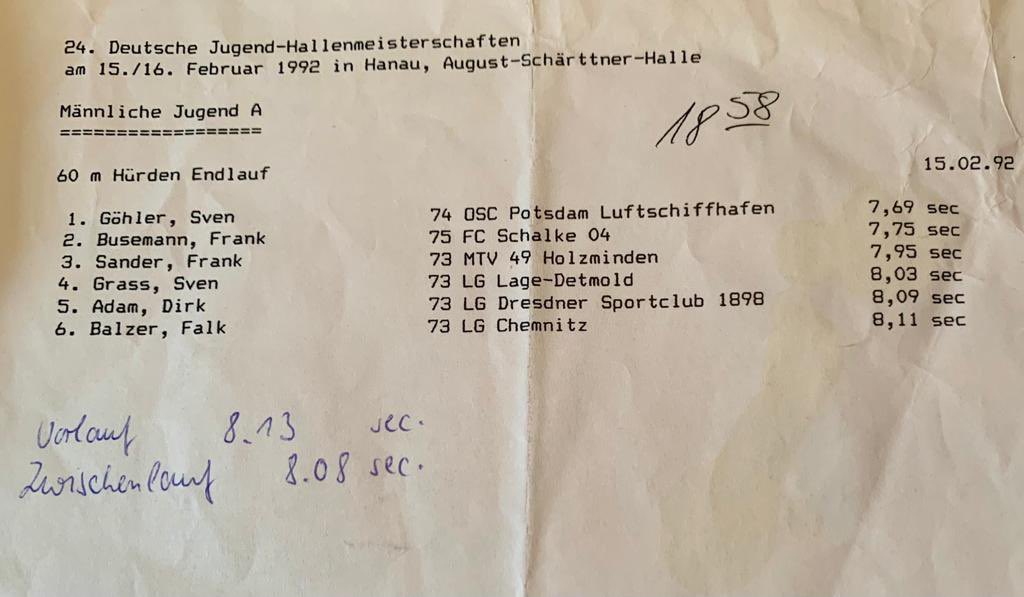 24. Deutsche Jugend-Hallenmeisterschaften
am 15./16. Februar 1992 in Hanau, August-Schärttner-Halle
Männliche Jugend A
==================
18 58
15.02.92
60 m Hürden Endlauf
1. Göhler, Sven 74 OSC Potsdam Luftschiffhafen 7,69 sec
2. Busemann, Frank 75 FC Schalke 04 7,75 sec
3. Sander, Frank 73 MTV 49 Holzminden 7,95 sec
4. Grass, Sven 73 LG Lage-Detmold 8,03 sec
5. Adam, Dirk 73 LG Dresdner Sportclub 1898 8,09 sec
6. Balzer, Falk 73 LG Chemnitz 8,11 sec
Vorlauf 8.13 sec.
Zwischenlauf 8.08 sec.